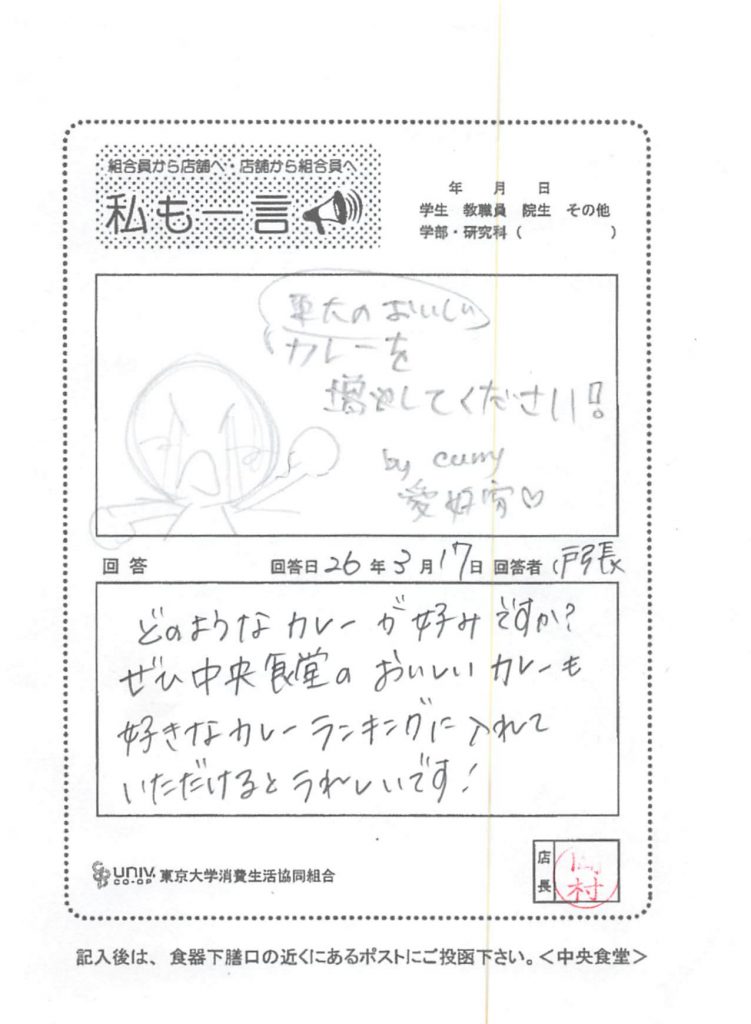 組合員から店舗へ・店舗から組合員へ
私も一言
年 月 日
学生 教職員 院生 その他
学部・研究科（ ）
東大のおいしい
カレーを
増やしてください!!
by curry
愛好家♡
回答 回答日 26年3月17日 回答者 戸張
どのようなカレーが好みですか？
ぜひ中央食堂のおいしいカレーも
好きなカレーランキングに入れて
いただけるとうれしいです！
UNIV. CO-OP 東京大学消費生活協同組合
店長
村
記入後は、食器下膳口の近くにあるポストにご投函下さい。＜中央食堂＞